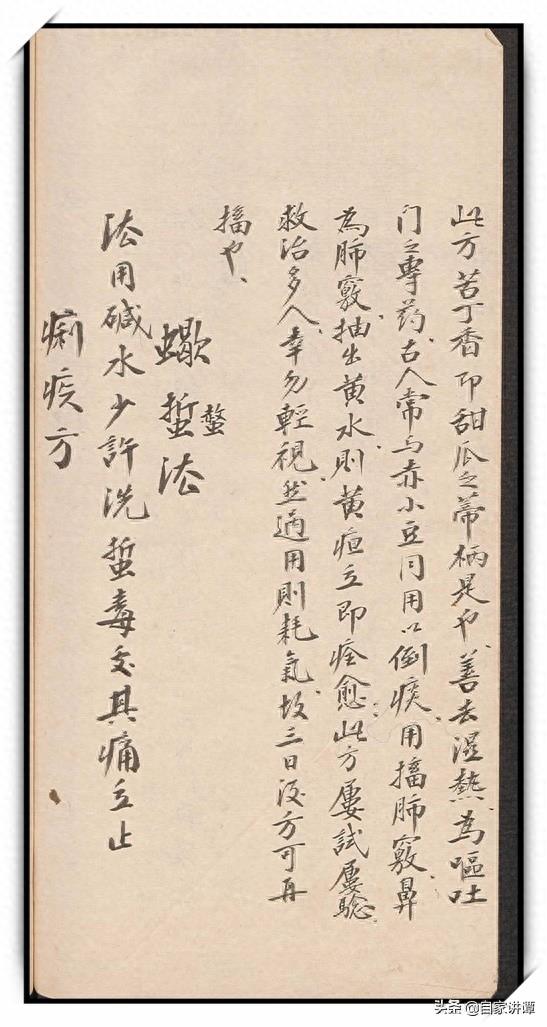 此方苦丁香即甜瓜之蒂柄是也、善去湿熱、為嘔吐
门之專药、古人常与赤小豆同用以倒痰、用搐肺竅鼻
為肺竅、抽出黄水、則黄疸立即痊愈、此方屢試屢驗、
救治多人、幸勿輕視、然過用則耗氣、故三日後方可再
搐也、
蠍蜇法
螫
法用碱水少許洗蜇毒处其痛立止
痢疾方
头条 @自家讲谭